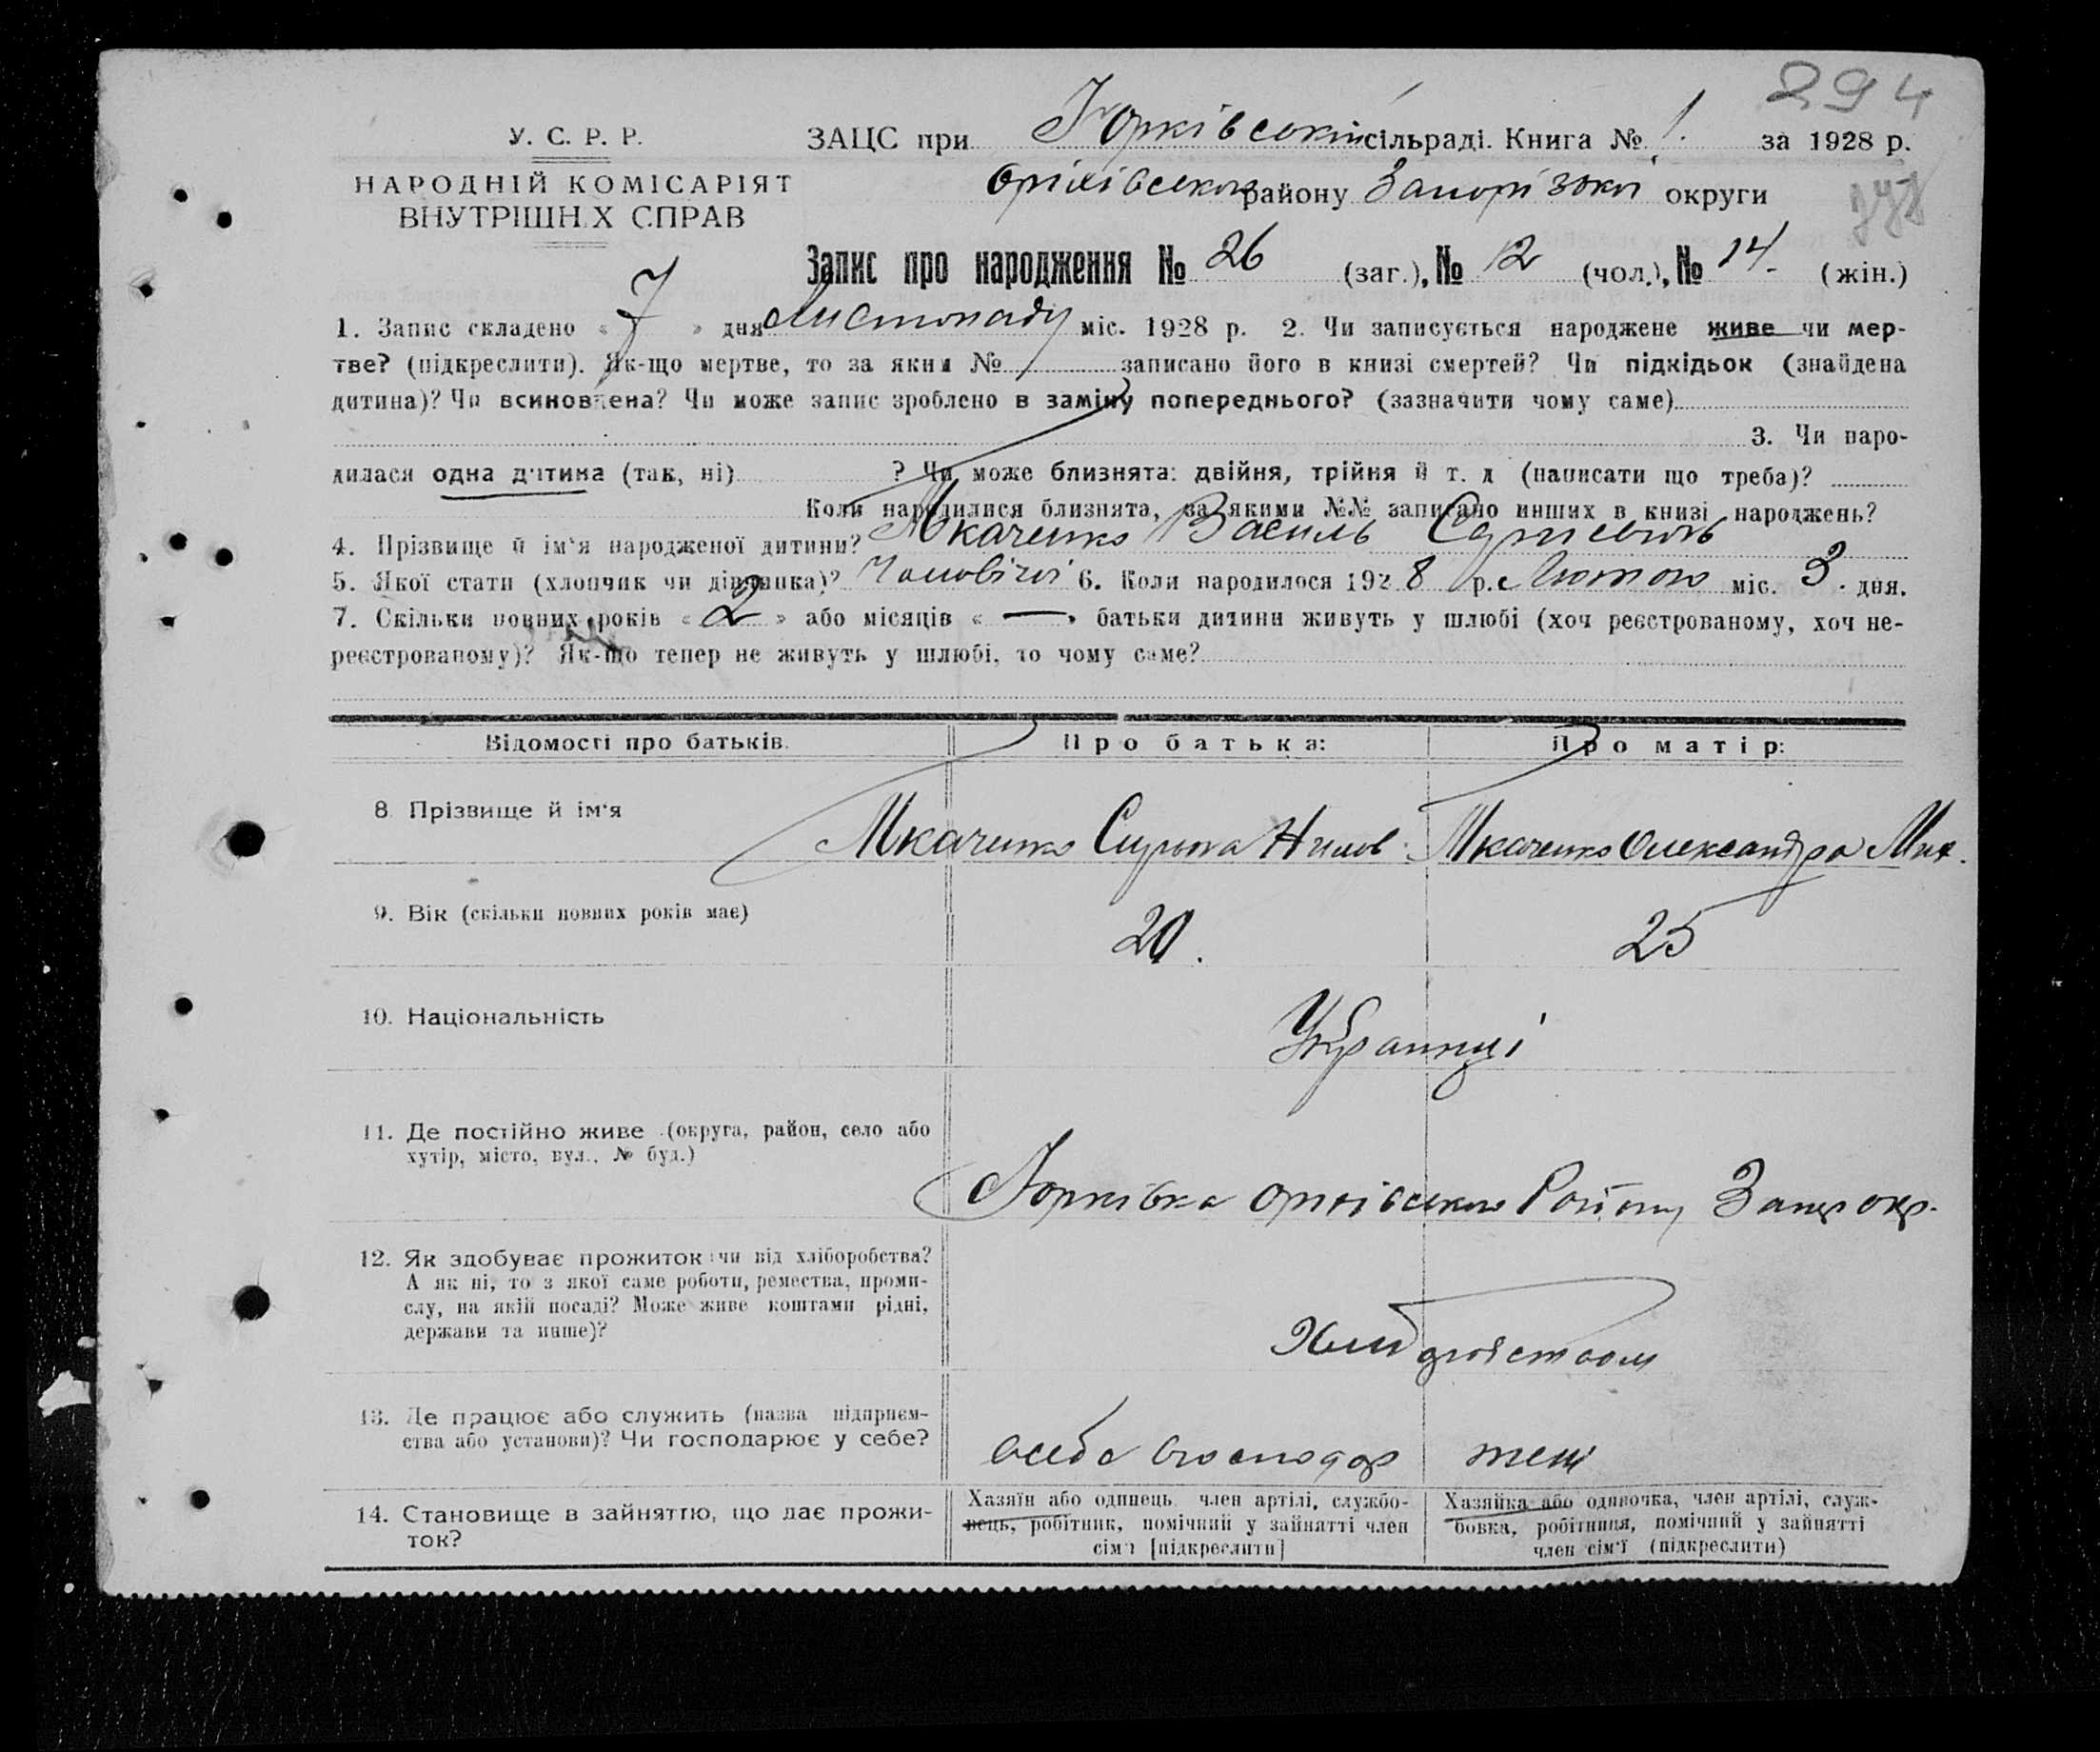 294
У. С. Р. Р.
ЗАЦС при Юрківській сільраді. Книга № 1. за 1928 р.
НАРОДНІЙ КОМІСАРІЯТ
Оріхівського району Запорізької округи
ВНУТРІШН.Х СПРАВ
Запис про народження № 26 (заг.), № 12 (чол.), № 14. (жін.)
1. Запис складено « 7 » дня Листопаду міс. 1928 р. 2. Чи записується народжене живе чи мер-
тве? (підкреслити). Як-що мертве, то за яким № записано його в книзі смертей? Чи підкідьок (знайдена
дитина)? Чи всиновлена? Чи може запис зроблено в заміну попереднього? (зазначити чому саме)
3. Чи наро-
дилася одна дитина (так, ні) ? Чи може близнята: двійня, трійня й т. д (написати що треба)?
Коли народилися близнята, за якими №№ записано инших в книзі народжень?
4. Прізвище й ім'я народженої дитини? Ткаченко Василь
5. Якої стати (хлопчик чи дівчинка)? Чоловічої 6. Коли народилося 1928 р. Лютого міс. 3. дня.
7. Скільки повних років « 2 » або місяців « — » батьки дитини живуть у шлюбі (хоч реєстрованому, хоч не-
реєстрованому)? Як-що тепер не живуть у шлюбі, то чому саме?
Відомості про батьків. Про батька: Про матір:
8 Прізвище й ім'я Ткаченко Нилов. Ткаченко Олександра Мих.
9. Вік (скільки повних років має) 20. 25
10. Національність Українці
11. Де постійно живе (округа, район, село або
хутір, місто, вул., № буд.)
Юрківка Оріхівського Району Запор окр.
12. Як здобуває прожиток: чи від хліборобства?
А як ні, то з якої саме роботи, ремества, проми-
слу, на якій посаді? Може живе коштами рідні,
держави та инше)?
13. Де працює або служить (назва підприєм-
ства або установи)? Чи господарює у себе?
у себе господар
14. Становище в зайняттю, що дає прожи-
ток?
Хазяїн або одинець член артілі, службо-
вець, робітник, помічний у зайнятті член
сім'ї [підкреслити]
Хазяйка або одиночка, член артілі, служ-
бовка, робітниця, помічний у зайнятті
член сім'ї (підкреслити)